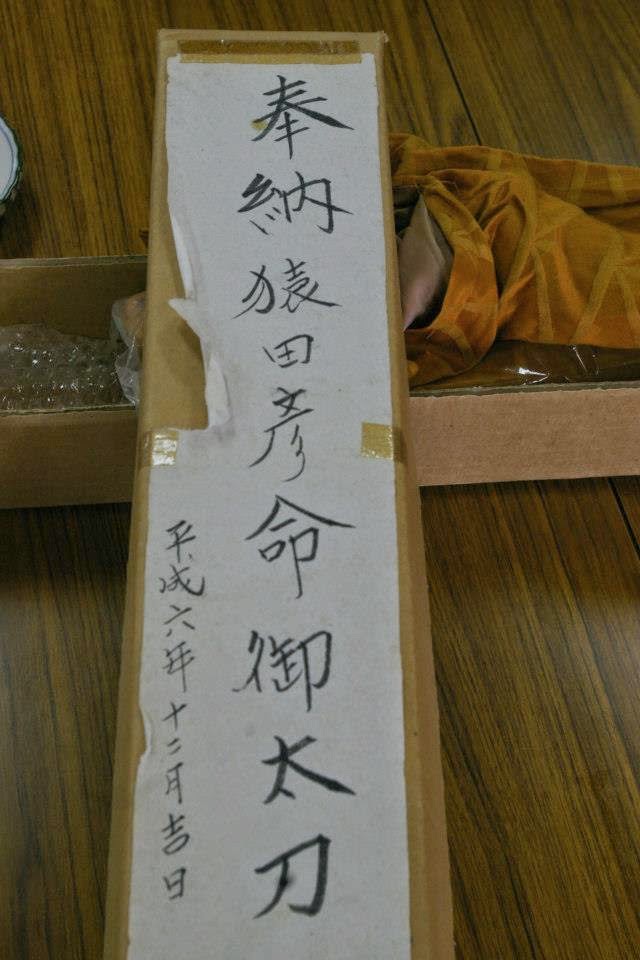 奉納猿田彦命御太刀
平成六年十二月吉日